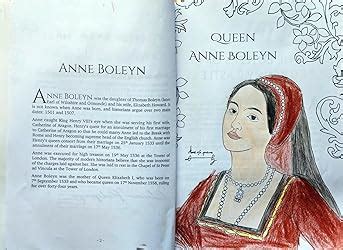 ANNE BOLEYN
ANNE BOLEYN was the daughter of Thomas Boleyn (later
Earl of Wiltshire and Ormonde) and his wife, Elizabeth Howard. It
is not known when Anne was born, and historians argue over two main
dates: 1501 and 1507.
Anne caught King Henry VIII's eye when she was serving his first wife,
Catherine of Aragon. Henry's quest for an annulment of his first marriage
to Catherine of Aragon so that he could marry Anne led to the Break with
Rome and Henry becoming supreme head of the English church. Anne was
Henry's queen consort from their marriage on 25th January 1533 until the
annulment of their marriage on 17th May 1536.
Anne was executed for high treason on 19th May 1536 at the Tower of
London. The majority of modern historians believe that she was innocent
of the charges laid against her. She was laid to rest in the Chapel of St Peter
ad Vincula at the Tower of London.
Anne Boleyn was the mother of Queen Elizabeth I, who was born on
7th September 1533 and who became queen on 17th November 1558, ruling
for over forty-four years.
2
QUEEN
ANNE BOLEYN